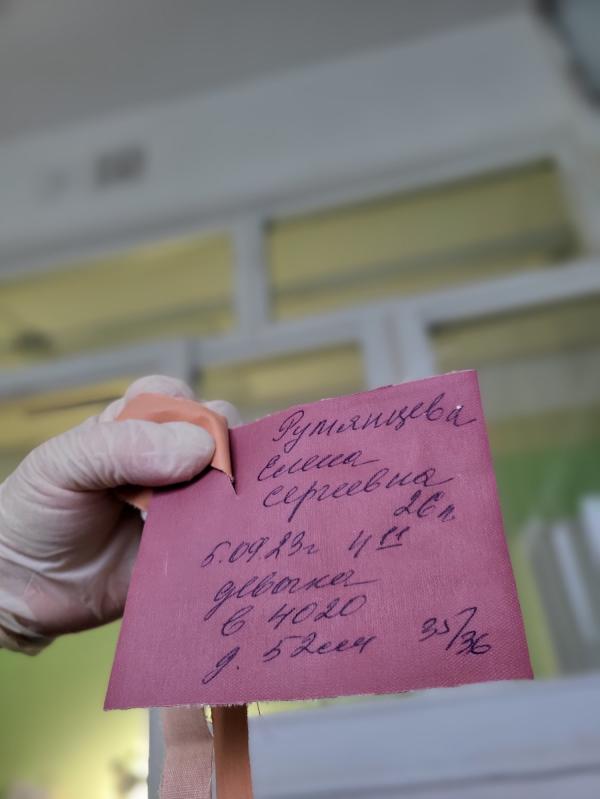 Румянцева
Елена
Сергеевна
26л
5.09.23г 4 11
девочка
в 4020
д. 52см 35/36